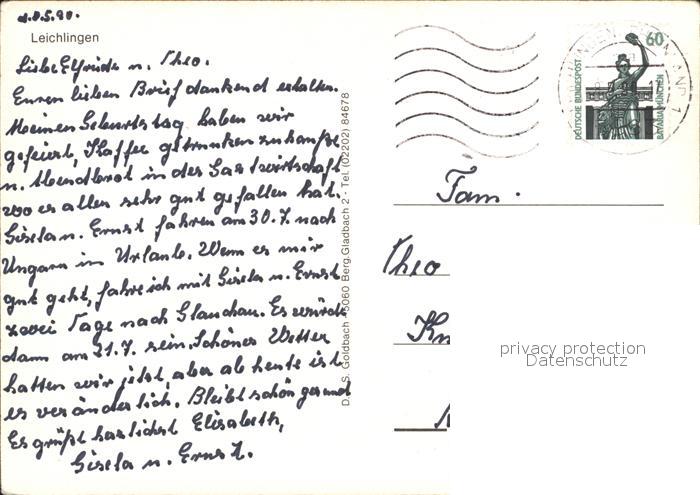 .5.90.
Leichlingen
Liebe Elfriede u. Theo.
Euren lieben Brief dankend erhalten.
Meinen Geburtstag haben wir
gefeiert, Kaffee getrunken zuhause
u. Abendbrot in der Gastwirtschaft
wo es allen sehr gut gefallen hat.
Gisela u. Ernst fahren am 30.7. nach
Ungarn in Urlaub. Wenn es mir
gut geht, fahre ich mit Gisela u. Ernst
zwei Tage nach Glauchau. Es würde
dann am 21.7. sein. Schönes Wetter
hatten wir jetzt, aber ab heute ist
es veränderlich. Bleibt schön gesund
Es grüßt herzlichst Elisabeth,
Gisela u. Ernst.
S. Goldbach · 5060 Berg.Gladbach 2 - Tel. (02202) 84678
60
DEUTSCHE BUNDESPOST
BAVARIA MÜNCHEN
Fam.
Theo
privacy protection
Datenschutz